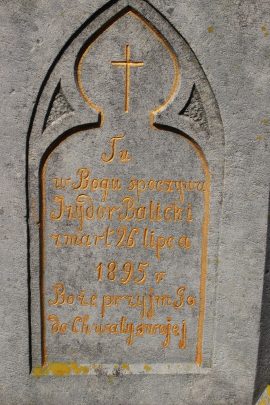 Tu
w Bogu spoczywa
Izydor Balicki
zmarł 26 lipca
1895 r
Boże przyjm Go
do Chwały swojej